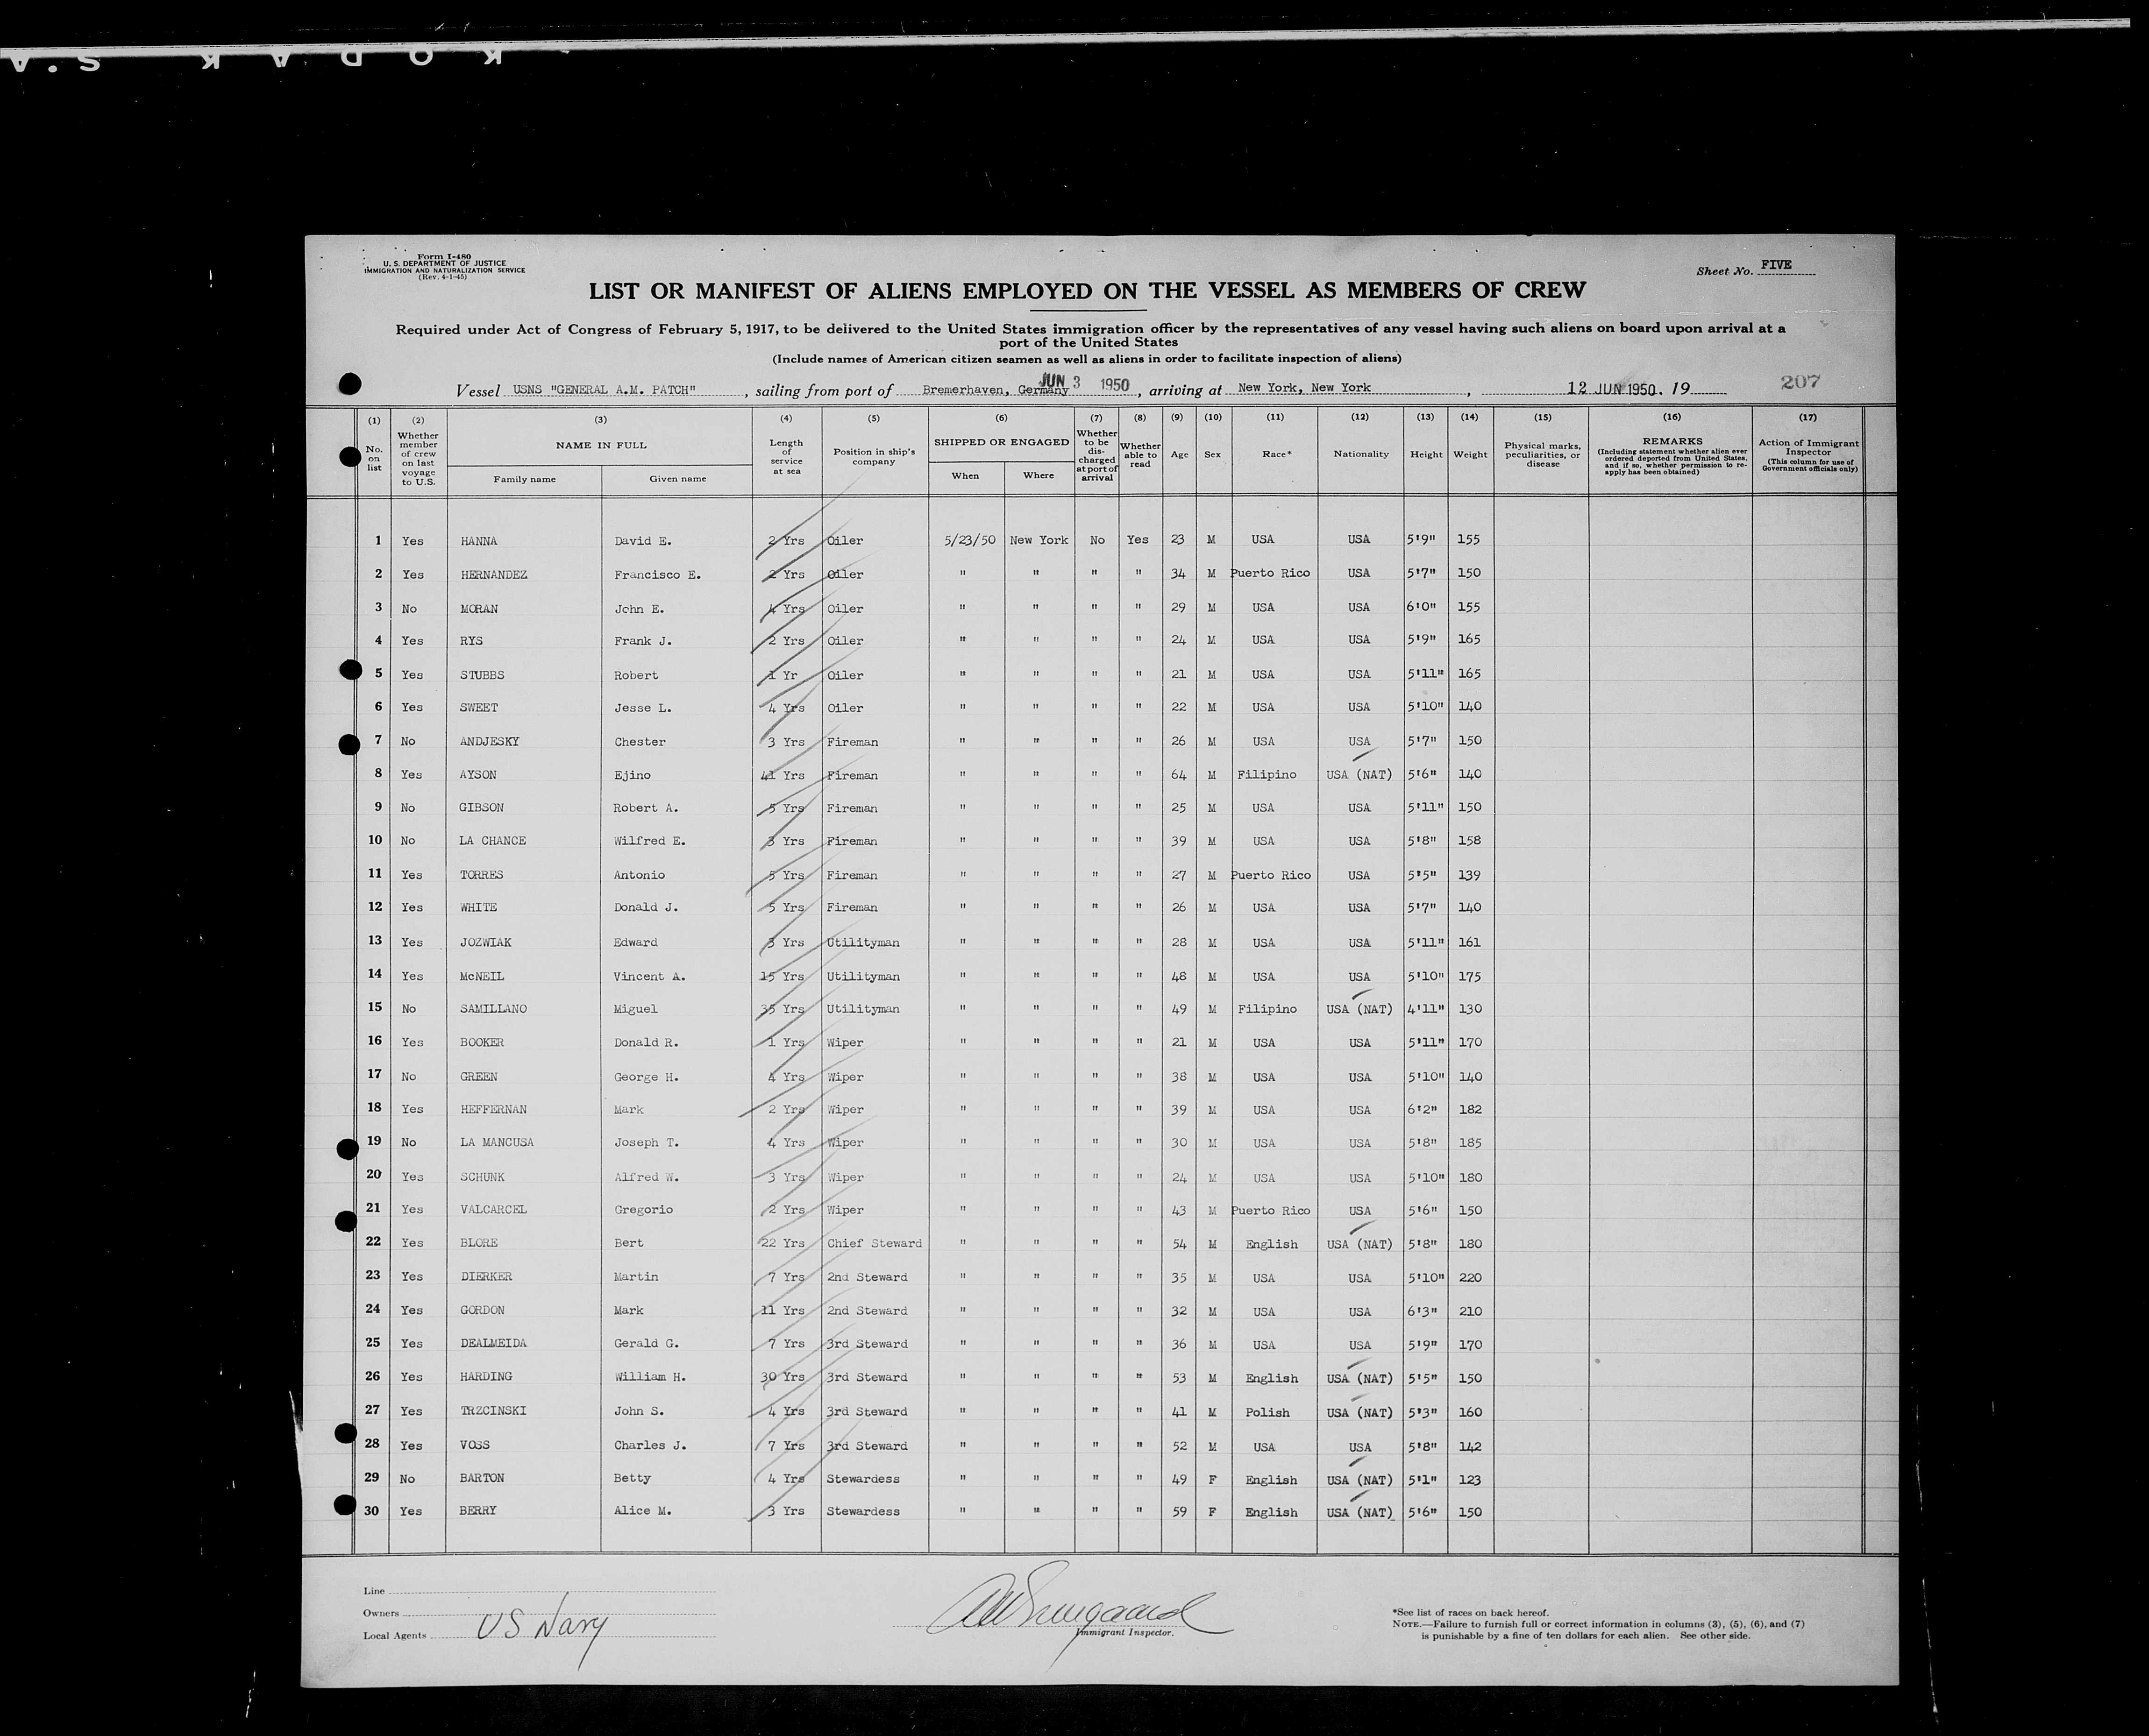 KODAK S.A
Form I-480
U. S. DEPARTMENT OF JUSTICE
IMMIGRATION AND NATURALIZATION SERVICE
(Rev. 4-1-45)
Sheet No. FIVE
LIST OR MANIFEST OF ALIENS EMPLOYED ON THE VESSEL AS MEMBERS OF CREW
Required under Act of Congress of February 5, 1917, to be delivered to the United States immigration officer by the representatives of any vessel having such aliens on board upon arrival at a
port of the United States
(Include names of American citizen seamen as well as aliens in order to facilitate inspection of aliens)
Vessel USNS "GENERAL A.M. PATCH", sailing from port of Bremerhaven, Germany JUN 3 1950, arriving at New York, New York, 12 JUN 1950. 19 207
(1) (2) (3) (4) (5) (6) (7) (8) (9) (10) (11) (12) (13) (14) (15) (16) (17)
No. on list
Whether member of crew on last voyage to U.S.
NAME IN FULL
Family name Given name
Length of service at sea
Position in ship's company
SHIPPED OR ENGAGED
When Where
Whether to be discharged at port of arrival
Whether able to read
Age
Sex
Race*
Nationality
Height
Weight
Physical marks, peculiarities, or disease
REMARKS
(Including statement whether alien ever ordered deported from United States, and if so, whether permission to reapply has been obtained)
Action of Immigrant Inspector
(This column for use of Government officials only)
1 Yes HANNA David E. 2 Yrs Oiler 5/23/50 New York No Yes 23 M USA USA 5'9" 155
2 Yes HERNANDEZ Francisco E. 2 Yrs Oiler " " " " 34 M Puerto Rico USA 5'7" 150
3 No MORAN John E. 4 Yrs Oiler " " " " 29 M USA USA 6'0" 155
4 Yes RYS Frank J. 2 Yrs Oiler " " " " 24 M USA USA 5'9" 165
5 Yes STUBBS Robert 1 Yr Oiler " " " " 21 M USA USA 5'11" 165
6 Yes SWEET Jesse L. 4 Yrs Oiler " " " " 22 M USA USA 5'10" 140
7 No ANDJESKY Chester 3 Yrs Fireman " " " " 26 M USA USA 5'7" 150
8 Yes AYSON Ejino 41 Yrs Fireman " " " " 64 M Filipino USA (NAT) 5'6" 140
9 No GIBSON Robert A. 5 Yrs Fireman " " " " 25 M USA USA 5'11" 150
10 No LA CHANCE Wilfred E. 3 Yrs Fireman " " " " 39 M USA USA 5'8" 158
11 Yes TORRES Antonio 5 Yrs Fireman " " " " 27 M Puerto Rico USA 5'5" 139
12 Yes WHITE Donald J. 5 Yrs Fireman " " " " 26 M USA USA 5'7" 140
13 Yes JOZWIAK Edward 3 Yrs Utilityman " " " " 28 M USA USA 5'11" 161
14 Yes McNEIL Vincent A. 15 Yrs Utilityman " " " " 48 M USA USA 5'10" 175
15 No SAMILLANO Miguel 35 Yrs Utilityman " " " " 49 M Filipino USA (NAT) 4'11" 130
16 Yes BOOKER Donald R. 1 Yrs Wiper " " " " 21 M USA USA 5'11" 170
17 No GREEN George H. 4 Yrs Wiper " " " " 38 M USA USA 5'10" 140
18 Yes HEFFERNAN Mark 2 Yrs Wiper " " " " 39 M USA USA 6'2" 182
19 No LA MANCUSA Joseph T. 4 Yrs Wiper " " " " 30 M USA USA 5'8" 185
20 Yes SCHUNK Alfred W. 3 Yrs Wiper " " " " 24 M USA USA 5'10" 180
21 Yes VALCARCEL Gregorio 2 Yrs Wiper " " " " 43 M Puerto Rico USA 5'6" 150
22 Yes BLORE Bert 22 Yrs Chief Steward " " " " 54 M English USA (NAT) 5'8" 180
23 Yes DIERKER Martin 7 Yrs 2nd Steward " " " " 35 M USA USA 5'10" 220
24 Yes GORDON Mark 11 Yrs 2nd Steward " " " " 32 M USA USA 6'3" 210
25 Yes DEALMEIDA Gerald G. 7 Yrs 3rd Steward " " " " 36 M USA USA 5'9" 170
26 Yes HARDING William H. 30 Yrs 3rd Steward " " " " 53 M English USA (NAT) 5'5" 150
27 Yes TRZCINSKI John S. 4 Yrs 3rd Steward " " " " 41 M Polish USA (NAT) 5'3" 160
28 Yes VOSS Charles J. 7 Yrs 3rd Steward " " " " 52 M USA USA 5'8" 142
29 No BARTON Betty 4 Yrs Stewardess " " " " 49 F English USA (NAT) 5'1" 123
30 Yes BERRY Alice M. 3 Yrs Stewardess " " " " 59 F English USA (NAT) 5'6" 150
Line
Owners
Local Agents US Navy
Immigrant Inspector.
*See list of races on back hereof.
NOTE.—Failure to furnish full or correct information in columns (3), (5), (6), and (7)
is punishable by a fine of ten dollars for each alien. See other side.